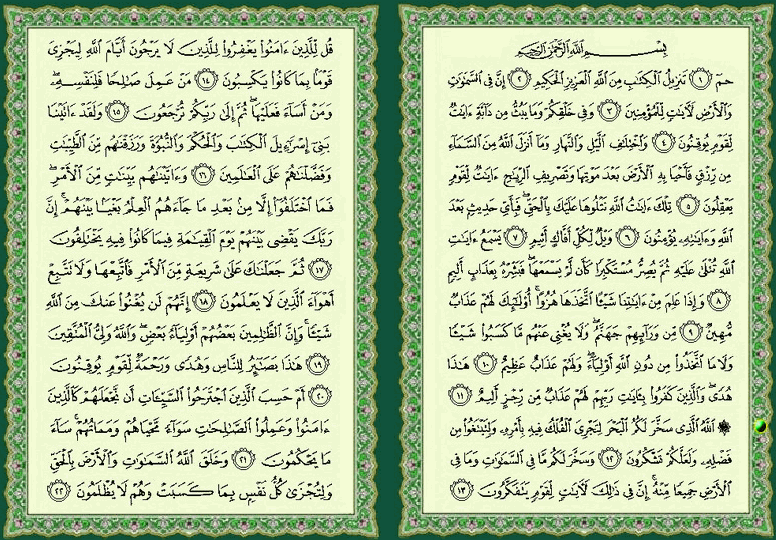 بِسْمِ ٱللَّهِ ٱلرَّحْمَٰنِ ٱلرَّحِيمِ
حمٓ ١ تَنزِيلُ ٱلْكِتَٰبِ مِنَ ٱللَّهِ ٱلْعَزِيزِ ٱلْحَكِيمِ ٢ إِنَّ فِى ٱلسَّمَٰوَٰتِ
وَٱلْأَرْضِ لَءَايَٰتٍ لِّلْمُؤْمِنِينَ ٣ وَفِى خَلْقِكُمْ وَمَا يَبُثُّ مِن دَآبَّةٍ ءَايَٰتٌ
لِّقَوْمٍ يُوقِنُونَ ٤ وَٱخْتِلَٰفِ ٱلَّيْلِ وَٱلنَّهَارِ وَمَآ أَنزَلَ ٱللَّهُ مِنَ ٱلسَّمَآءِ
مِن رِّزْقٍ فَأَحْيَا بِهِ ٱلْأَرْضَ بَعْدَ مَوْتِهَا وَتَصْرِيفِ ٱلرِّيَٰحِ ءَايَٰتٌ لِّقَوْمٍ
يَعْقِلُونَ ٥ تِلْكَ ءَايَٰتُ ٱللَّهِ نَتْلُوهَا عَلَيْكَ بِٱلْحَقِّ ۖ فَبِأَىِّ حَدِيثٍۭ بَعْدَ
ٱللَّهِ وَءَايَٰتِهِۦ يُؤْمِنُونَ ٦ وَيْلٌ لِّكُلِّ أَفَّاكٍ أَثِيمٍ ٧ يَسْمَعُ ءَايَٰتِ
ٱللَّهِ تُتْلَىٰ عَلَيْهِ ثُمَّ يُصِرُّ مُسْتَكْبِرًا كَأَن لَّمْ يَسْمَعْهَا ۖ فَبَشِّرْهُ بِعَذَابٍ أَلِيمٍ
٨ وَإِذَا عَلِمَ مِنْ ءَايَٰتِنَا شَيْـًٔا ٱتَّخَذَهَا هُزُوًا ۚ أُو۟لَٰٓئِكَ لَهُمْ عَذَابٌ
مُّهِينٌ ٩ مِّن وَرَآئِهِمْ جَهَنَّمُ ۖ وَلَا يُغْنِى عَنْهُم مَّا كَسَبُوا۟ شَيْـًٔا
وَلَا مَا ٱتَّخَذُوا۟ مِن دُونِ ٱللَّهِ أَوْلِيَآءَ ۖ وَلَهُمْ عَذَابٌ عَظِيمٌ ١٠ هَٰذَا
هُدًى ۖ وَٱلَّذِينَ كَفَرُوا۟ بِـَٔايَٰتِ رَبِّهِمْ لَهُمْ عَذَابٌ مِّن رِّجْزٍ أَلِيمٌ ١١
۞ ٱللَّهُ ٱلَّذِى سَخَّرَ لَكُمُ ٱلْبَحْرَ لِتَجْرِىَ ٱلْفُلْكُ فِيهِ بِأَمْرِهِۦ وَلِتَبْتَغُوا۟ مِن
فَضْلِهِۦ وَلَعَلَّكُمْ تَشْكُرُونَ ١٢ وَسَخَّرَ لَكُم مَّا فِى ٱلسَّمَٰوَٰتِ وَمَا فِى
ٱلْأَرْضِ جَمِيعًا مِّنْهُ ۚ إِنَّ فِى ذَٰلِكَ لَءَايَٰتٍ لِّقَوْمٍ يَتَفَكَّرُونَ ١٣
قُل لِّلَّذِينَ ءَامَنُوا۟ يَغْفِرُوا۟ لِلَّذِينَ لَا يَرْجُونَ أَيَّامَ ٱللَّهِ لِيَجْزِىَ
قَوْمًۢا بِمَا كَانُوا۟ يَكْسِبُونَ ١٤ مَنْ عَمِلَ صَٰلِحًا فَلِنَفْسِهِۦ ۖ
وَمَنْ أَسَآءَ فَعَلَيْهَا ۖ ثُمَّ إِلَىٰ رَبِّكُمْ تُرْجَعُونَ ١٥ وَلَقَدْ ءَاتَيْنَا
بَنِىٓ إِسْرَٰٓءِيلَ ٱلْكِتَٰبَ وَٱلْحُكْمَ وَٱلنُّبُوَّةَ وَرَزَقْنَٰهُم مِّنَ ٱلطَّيِّبَٰتِ
وَفَضَّلْنَٰهُمْ عَلَى ٱلْعَٰلَمِينَ ١٦ وَءَاتَيْنَٰهُم بَيِّنَٰتٍ مِّنَ ٱلْأَمْرِ ۖ
فَمَا ٱخْتَلَفُوٓا۟ إِلَّا مِنۢ بَعْدِ مَا جَآءَهُمُ ٱلْعِلْمُ بَغْيًۢا بَيْنَهُمْ ۚ إِنَّ
رَبَّكَ يَقْضِى بَيْنَهُمْ يَوْمَ ٱلْقِيَٰمَةِ فِيمَا كَانُوا۟ فِيهِ يَخْتَلِفُونَ
١٧ ثُمَّ جَعَلْنَٰكَ عَلَىٰ شَرِيعَةٍ مِّنَ ٱلْأَمْرِ فَٱتَّبِعْهَا وَلَا تَتَّبِعْ
أَهْوَآءَ ٱلَّذِينَ لَا يَعْلَمُونَ ١٨ إِنَّهُمْ لَن يُغْنُوا۟ عَنكَ مِنَ ٱللَّهِ
شَيْـًٔا ۚ وَإِنَّ ٱلظَّٰلِمِينَ بَعْضُهُمْ أَوْلِيَآءُ بَعْضٍ ۖ وَٱللَّهُ وَلِىُّ ٱلْمُتَّقِينَ
١٩ هَٰذَا بَصَٰٓئِرُ لِلنَّاسِ وَهُدًى وَرَحْمَةٌ لِّقَوْمٍ يُوقِنُونَ
٢٠ أَمْ حَسِبَ ٱلَّذِينَ ٱجْتَرَحُوا۟ ٱلسَّيِّـَٔاتِ أَن نَّجْعَلَهُمْ كَٱلَّذِينَ
ءَامَنُوا۟ وَعَمِلُوا۟ ٱلصَّٰلِحَٰتِ سَوَآءً مَّحْيَاهُمْ وَمَمَاتُهُمْ ۚ سَآءَ
مَا يَحْكُمُونَ ٢١ وَخَلَقَ ٱللَّهُ ٱلسَّمَٰوَٰتِ وَٱلْأَرْضَ بِٱلْحَقِّ
وَلِتُجْزَىٰ كُلُّ نَفْسٍۭ بِمَا كَسَبَتْ وَهُمْ لَا يُظْلَمُونَ ٢٢